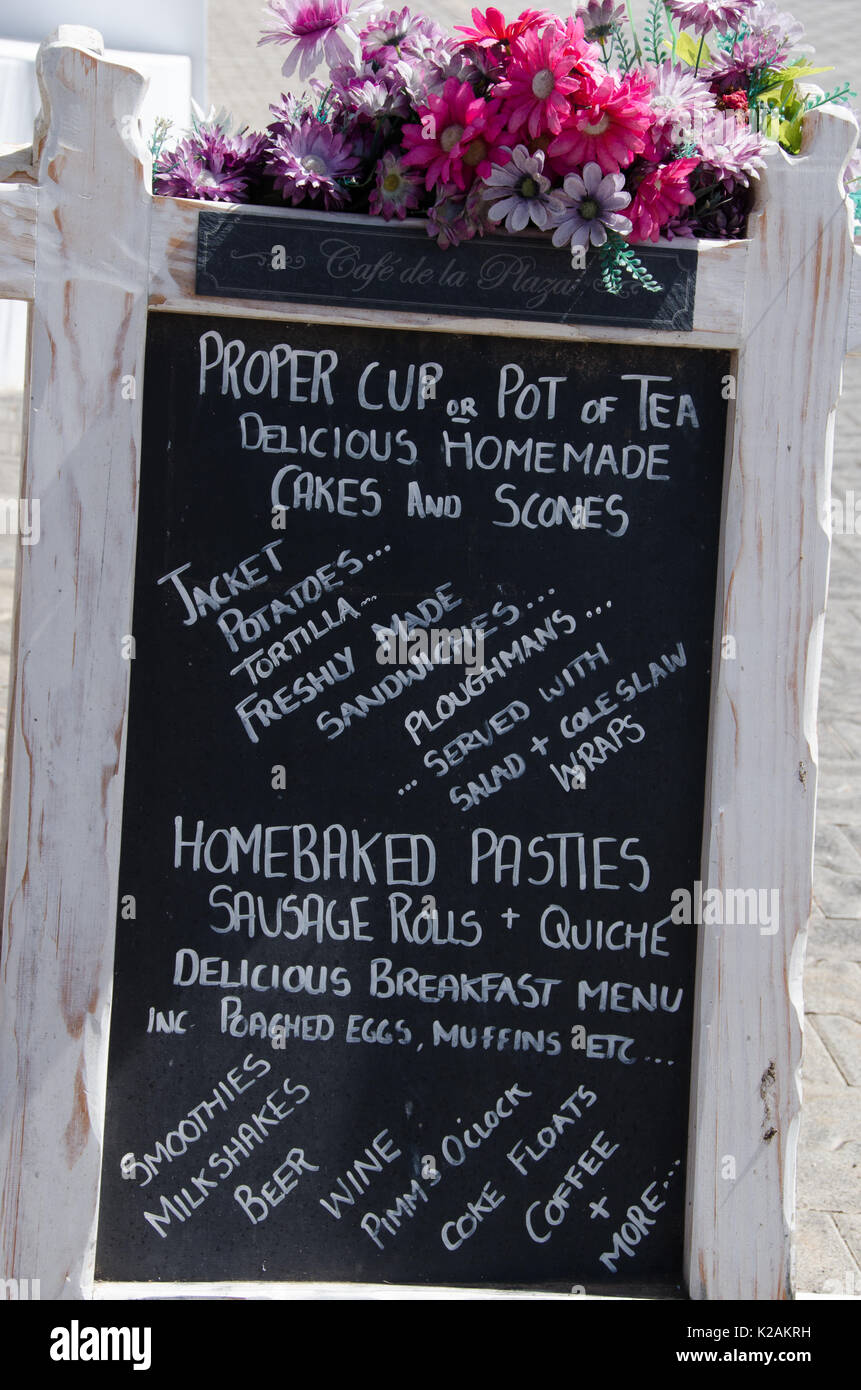 Café de la Plaza
PROPER CUP OR POT OF TEA
DELICIOUS HOMEMADE
CAKES AND SCONES
JACKET
POTATOES...
TORTILLA...
FRESHLY MADE
SANDWICHES...
PLOUGHMANS...
... SERVED WITH
SALAD + COLESLAW
WRAPS
HOMEBAKED PASTIES
SAUSAGE ROLLS + QUICHÉ
DELICIOUS BREAKFAST MENU
INC POAGHED EGGS, MUFFINS ETC....
SMOOTHIES
MILKSHAKES
BEER
WINE
PIMM'S O'CLOCK
COKE FLOATS
COFFEE
+
MORE...
alamy
Image ID: K2AKRH
www.alamy.com